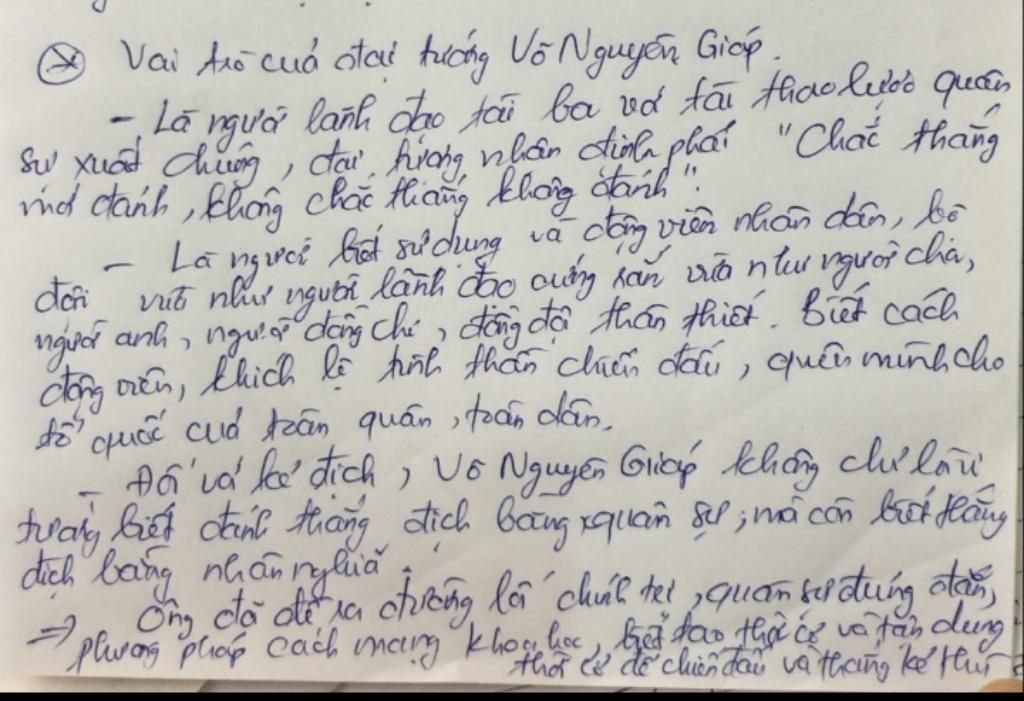 Vai trò của đại tướng Võ Nguyên Giáp.
- Là người lãnh đạo tài ba với tài thao lược quân
sự xuất chúng, đại tướng nhận định phải "Chắc thắng
mới đánh, không chắc thắng không đánh".
- Là người biết sử dụng và động viên nhân dân, bộ
đội vừa như người lãnh đạo cứng rắn vừa như người cha,
người anh, người đồng chí, đồng đội thân thiết. Biết cách
động viên, khích lệ tinh thần chiến đấu, quên mình cho
tổ quốc của toàn quân, toàn dân.
- Đối với kẻ địch, Võ Nguyên Giáp không chỉ là vị
tướng biết đánh thắng địch bằng quân sự, mà còn biết thắng
địch bằng nhân nghĩa.
⇒ Ông đã đề ra đường lối chính trị, quân sự đúng đắn,
phương pháp cách mạng khoa học, biết tạo thời cơ và tận dụng
thời cơ để chiến đấu và thắng kẻ thù